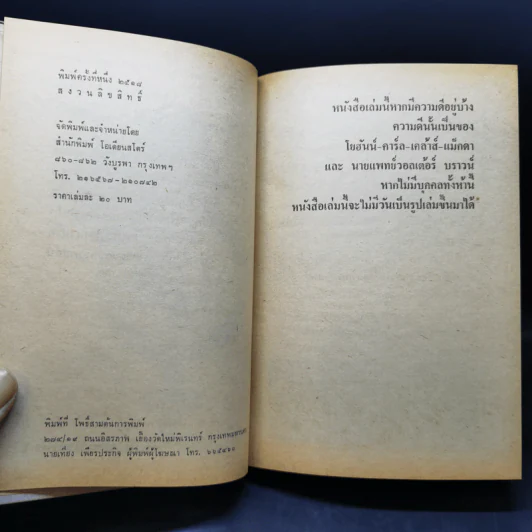 พิมพ์ครั้งที่หนึ่ง ๒๕๑๘
สงวนลิขสิทธิ์
จัดพิมพ์และจำหน่ายโดย
สำนักพิมพ์ โอเดียนสโตร์
๘๖๐-๘๖๒ วังบูรพา กรุงเทพฯ
โทร. ๒๑๖๕๖๗-๒๑๐๗๔๒
ราคาเล่มละ ๒๐ บาท
พิมพ์ที่ โพธิ์สามต้นการพิมพ์
๒๗๔/๑๙ ถนนอิสรภาพ เยื้องวัดใหม่พิเรนทร์
นายเที่ยง เพียรประกิจ ผู้พิมพ์ผู้โฆษณา โทร. ๖๖๕๔๒๐
หนังสือเล่มนี้หากมีความดีอยู่บ้าง
ความดีนั้นเป็นของ
โยฮันน์-คาร์ล-เคล้าส์-แม็กดา
และ นายแพทย์วอลเต้อร์ บราวน์
หากไม่มีบุคคลทั้งห้านี้
หนังสือเล่มนี้จะไม่มีวันเป็นรูปเล่มขึ้นมาได้